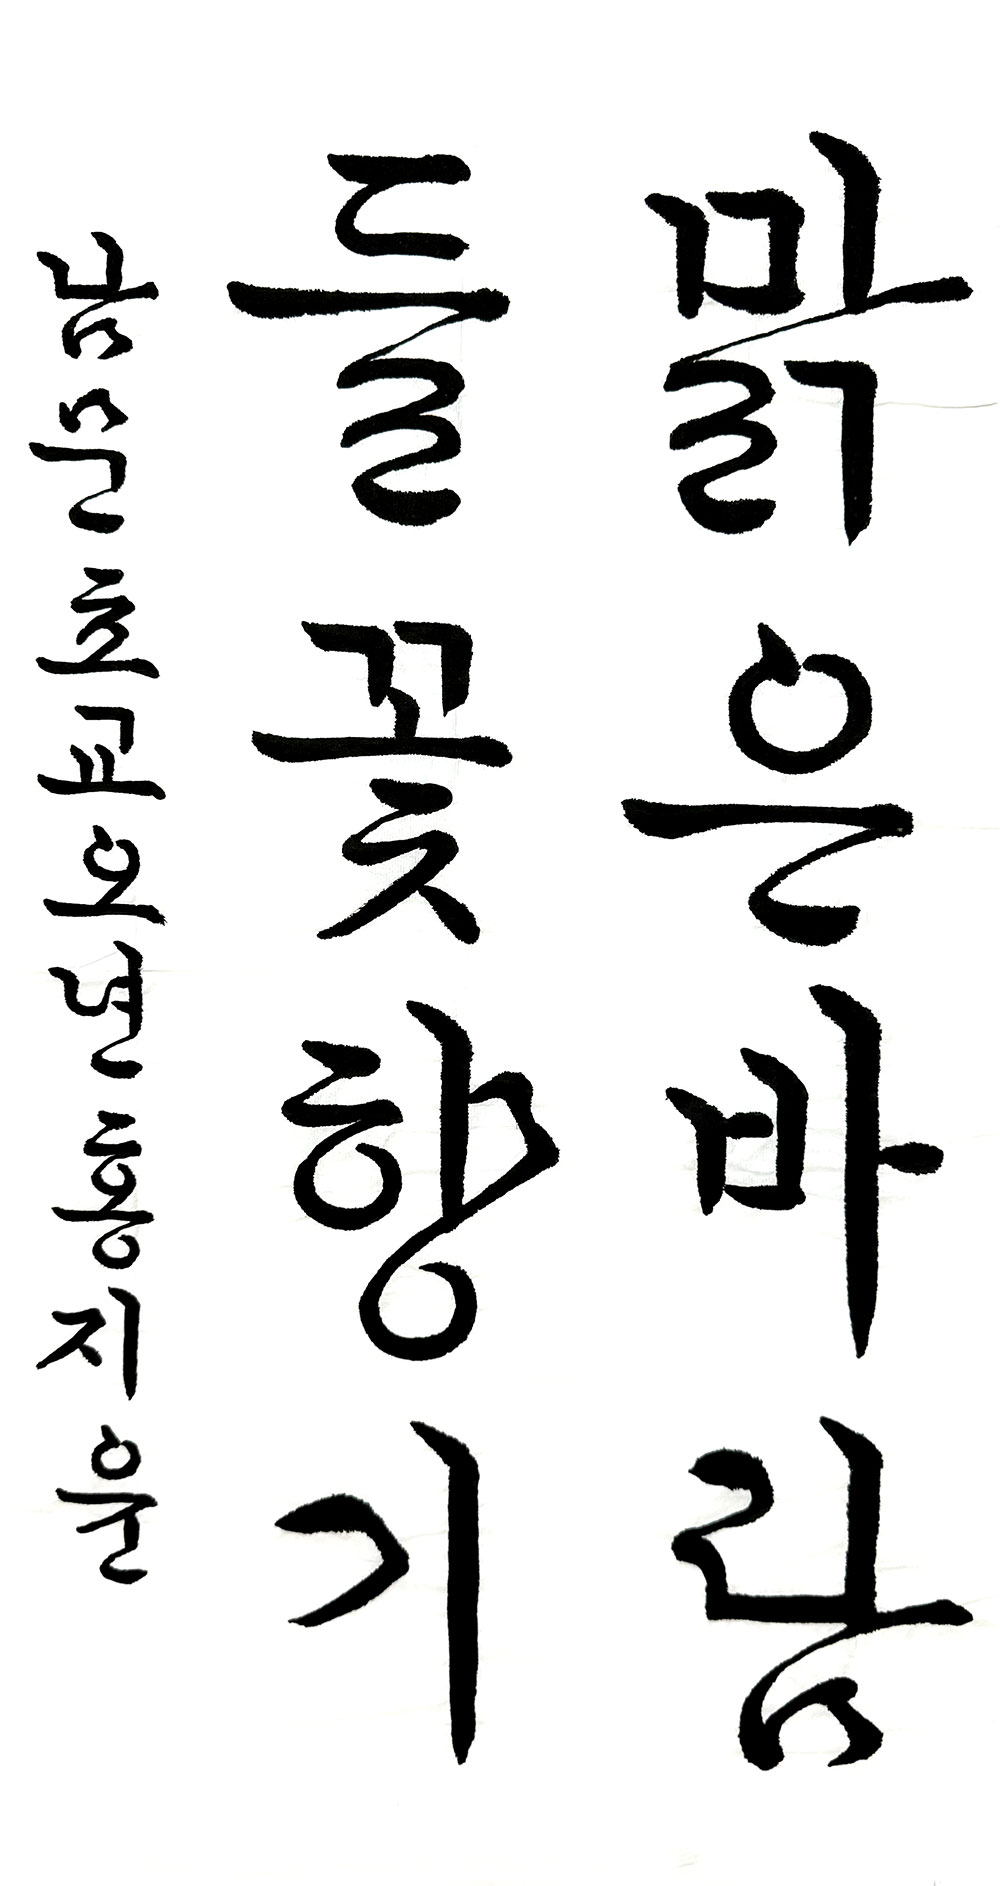 맑은바람
들꽃향기
남문초교오년홍지윤